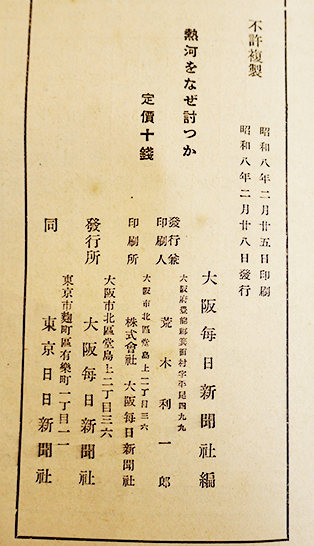 不許複製
昭和八年二月廿五日印刷
昭和八年二月廿八日發行
熱河をなぜ討つか
定價十錢
大阪每日新聞社編
大阪府豊能郡箕面村字平尾四九九
發行兼
印刷人
荒木利一郎
大阪市北區堂島上二丁目三六
印刷所
株式會社 大阪每日新聞社
大阪市北區堂島上二丁目三六
發行所 大阪每日新聞社
東京市麴町區有樂町一丁目一一
同 東京日日新聞社